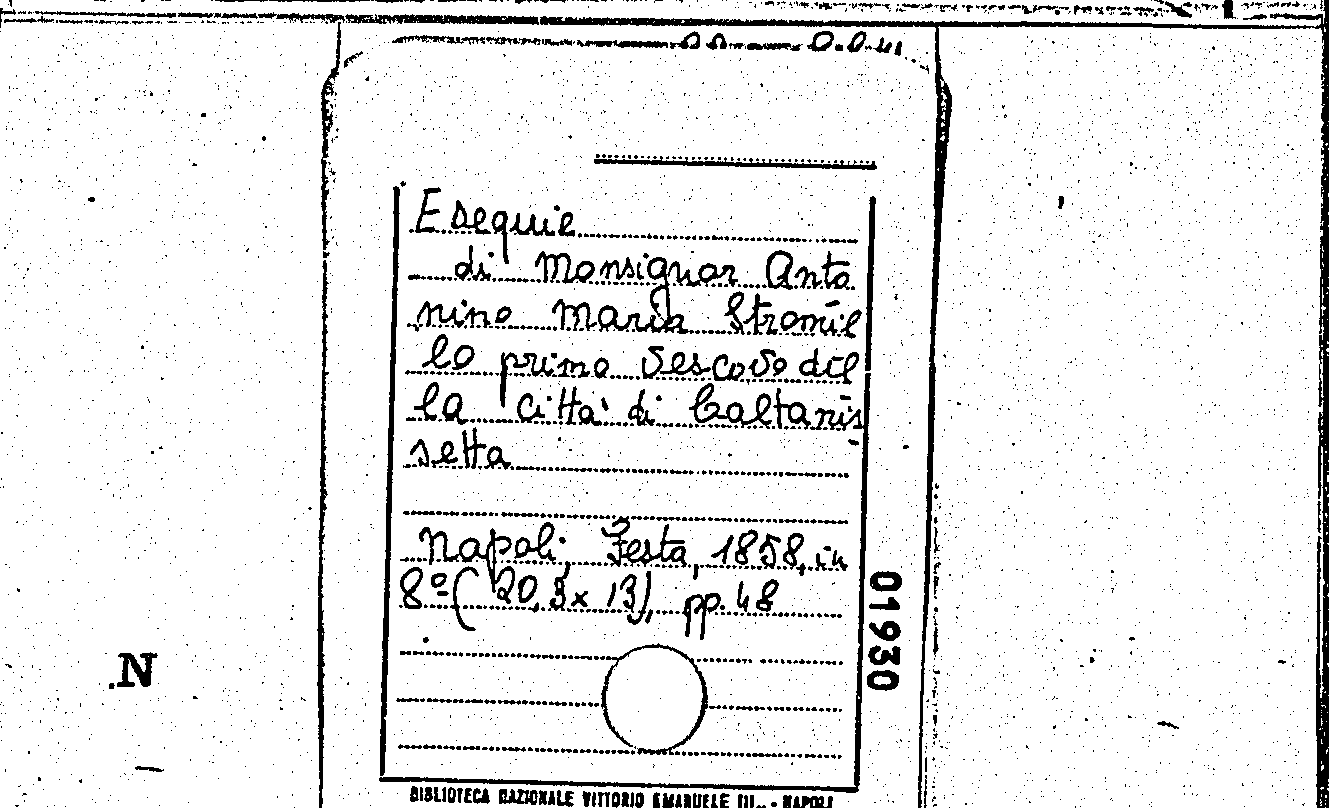 Esequie
di Monsignor Anto
nino Maria Stromil
lo primo Vescovo del
la città di Caltanis
setta
Napoli, Festa, 1858, in
8º (20,3 x 13), pp. 48
01930
N
BIBLIOTECA NAZIONALE VITTORIO EMANUELE III. - NAPOLI